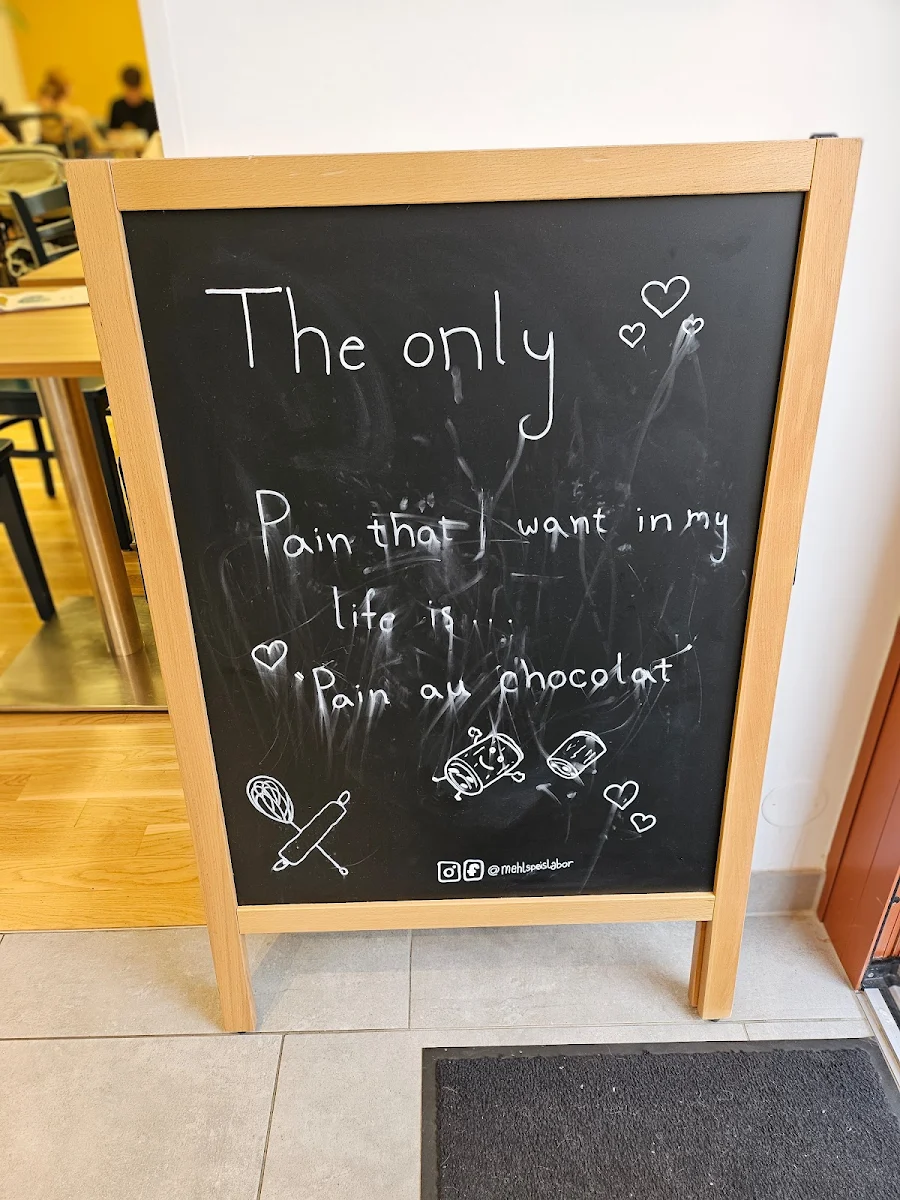 The only
Pain that I want in my
life is...
"Pain au chocolat"
@mehlspeislabor